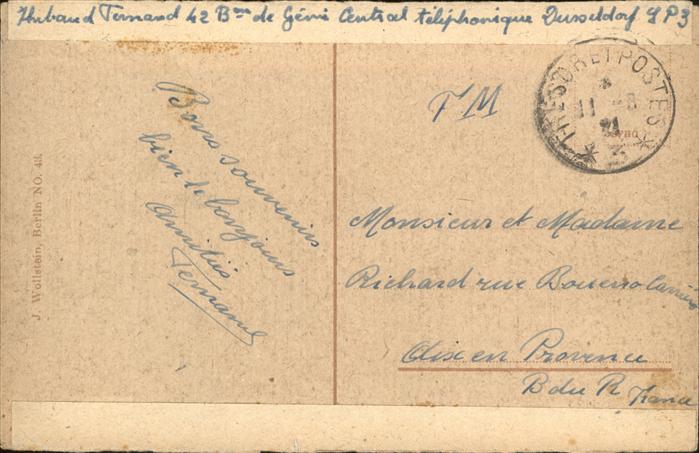 Thibaud Fernand 42 Bon de Génie Central téléphonique Dusseldorf SP3
FM
TRESOR ET POSTES
11 - 8
21
* 3 *
Bons souvenirs
bien le bonjours
amitiés
Fernand
Monsieur et Madame
Richard rue Boueno Carriero
Aix en Provence
B du R France
J. Wollstein, Berlin NO. 43.